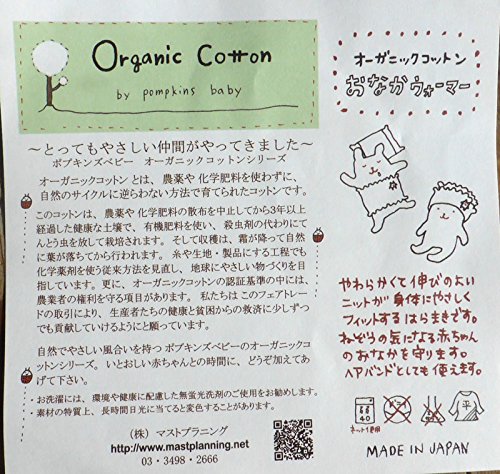 Organic Cotton
by pompkins baby
～とってもやさしい仲間がやってきました～
ポプキンズベビー　オーガニックコットンシリーズ
オーガニックコットン とは、農薬や 化学肥料を使わずに、
自然のサイクルに逆らわない方法で育てられたコットンです。
このコットンは、農薬や 化学肥料の散布を中止してから3年以上
経過した健康な土壌で、有機肥料を使い、殺虫剤の代わりに
てんとう虫を放して栽培されます。そして収穫は、霜が降って自然
に葉が落ちてから行われます。 糸や生地・製品にする工程でも
化学薬剤を使う従来方法を見直し、地球にやさしい物づくりを目
指しています。更に、オーガニックコットンの認証基準の中には、
農業者の権利を守る項目があります。 私たちは このフェアトレー
ドの取引により、生産者たちの健康と貧困からの救済に少しずつ
でも貢献していけるようにと願っています。
自然でやさしい風合いを持つ ポプキンズベビーのオーガニックコ
ットンシリーズ。いとおしい赤ちゃんとの時間に、どうぞ加えてあ
げて下さい。
・お洗濯には、環境や健康に配慮した無蛍光洗剤のご使用をお勧めします。
・素材の特質上、長時間日光に当てると変色することがあります。
（株）マストプラニング
http://www.mastplanning.net
03・3498・2666
オーガニックコットン
おなかウォーマー
やわらかくて伸びのよい
ニットが身体にやさしく
フィットするはらまきです。
ねぞうの気になる赤ちゃん
のおなかを守ります。
ヘアバンドとしても使えます。
40
平
ネット使用
MADE IN JAPAN